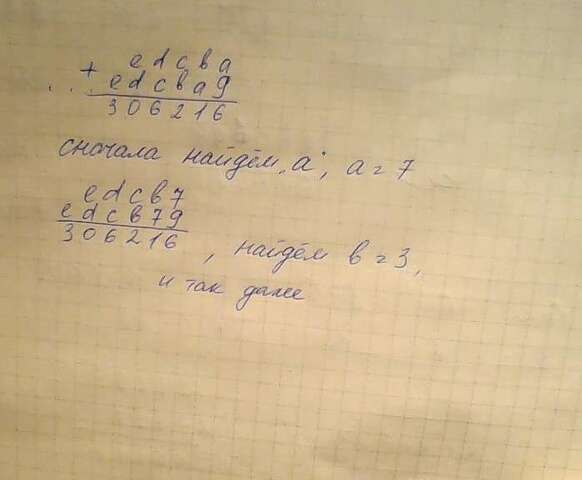 e d c b a
+
e d c b a 9
306216
сначала найдём "a", a = 7
e d c b 7
e d c b 7 9
306216
, найдём b = 3,
и так даже